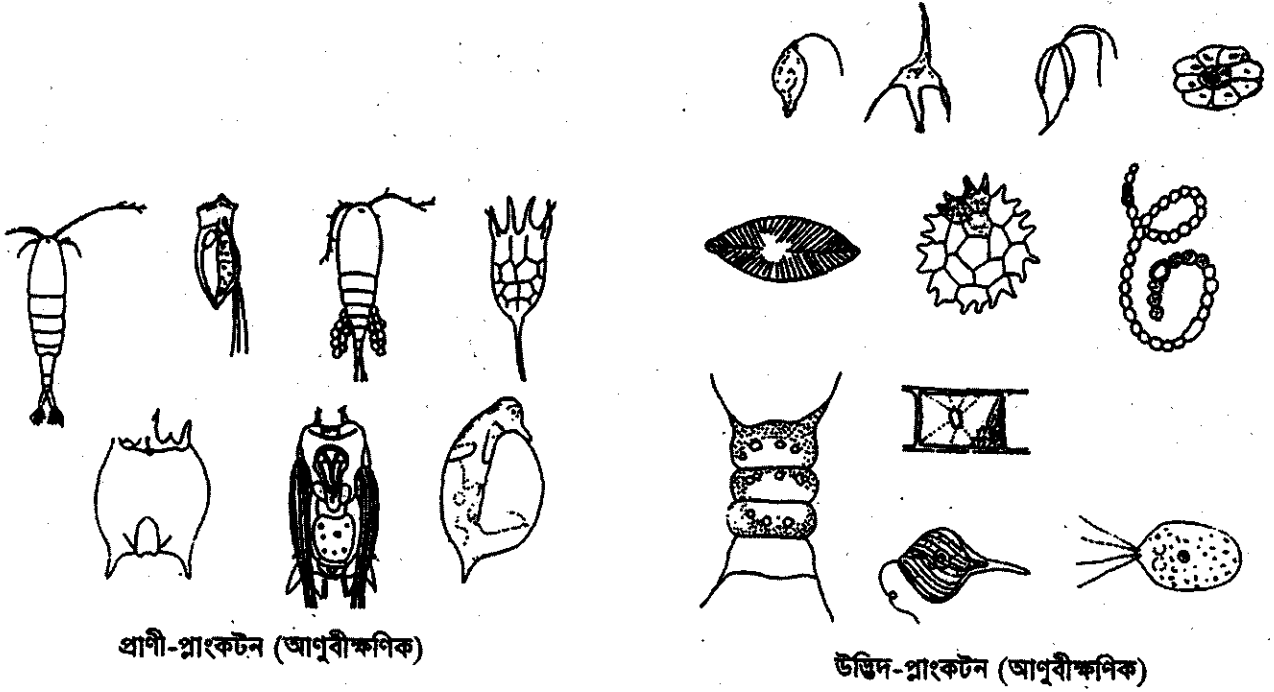 প্রাণী-প্লাংকটন (আণুবীক্ষণিক)
উদ্ভিদ-প্লাংকটন (আণুবীক্ষণিক)